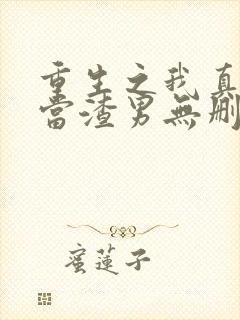 重生之我真
當渣男無刪
蜜蓮子